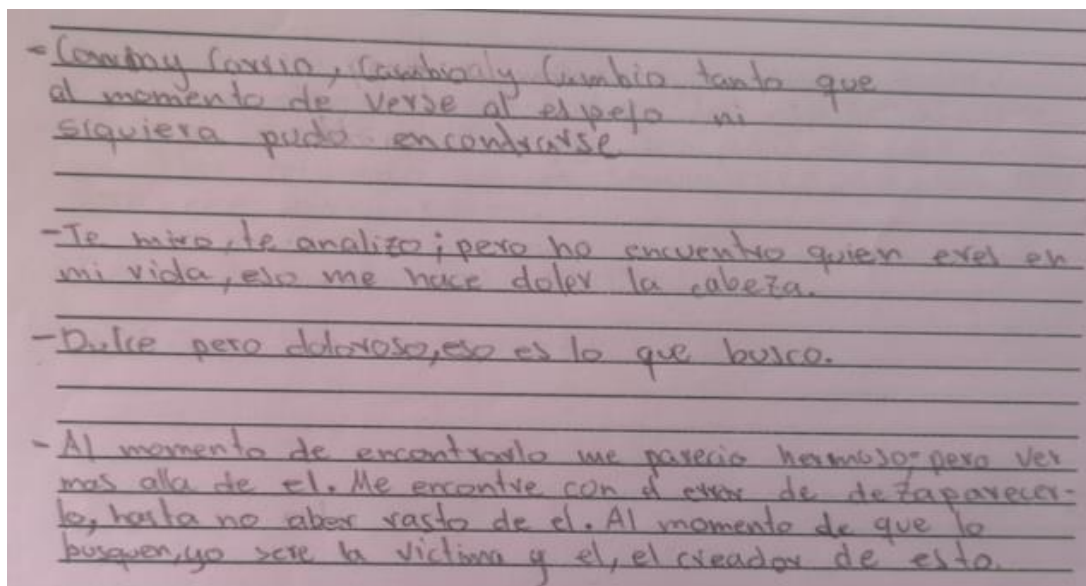 - Camino Corrio, Cambio y Cambio tanto que
al momento de verse al espejo ni
siquiera pudo encontrarse
- Te miro, te analizo; pero no encuentro quien eres en
mi vida, eso me hace doler la cabeza.
- Dulce pero doloroso, eso es lo que busco.
- Al momento de encontrarlo me parecio hermoso, pero ver
mas alla de el. Me encontre con el error de dezaparecer-
lo, hasta no aber rasto de el. Al momento de que lo
busquen, yo sere la victima y el, el creador de esto.